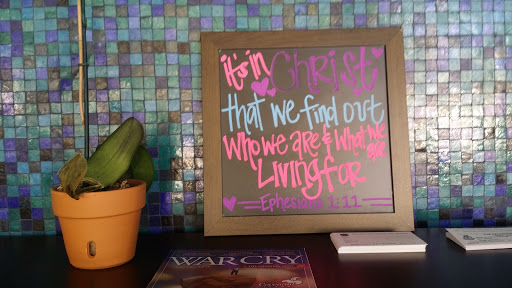 it's in Christ
that we find out
who we are & what we
are
Living for
Ephesians 1:11
WAR CRY